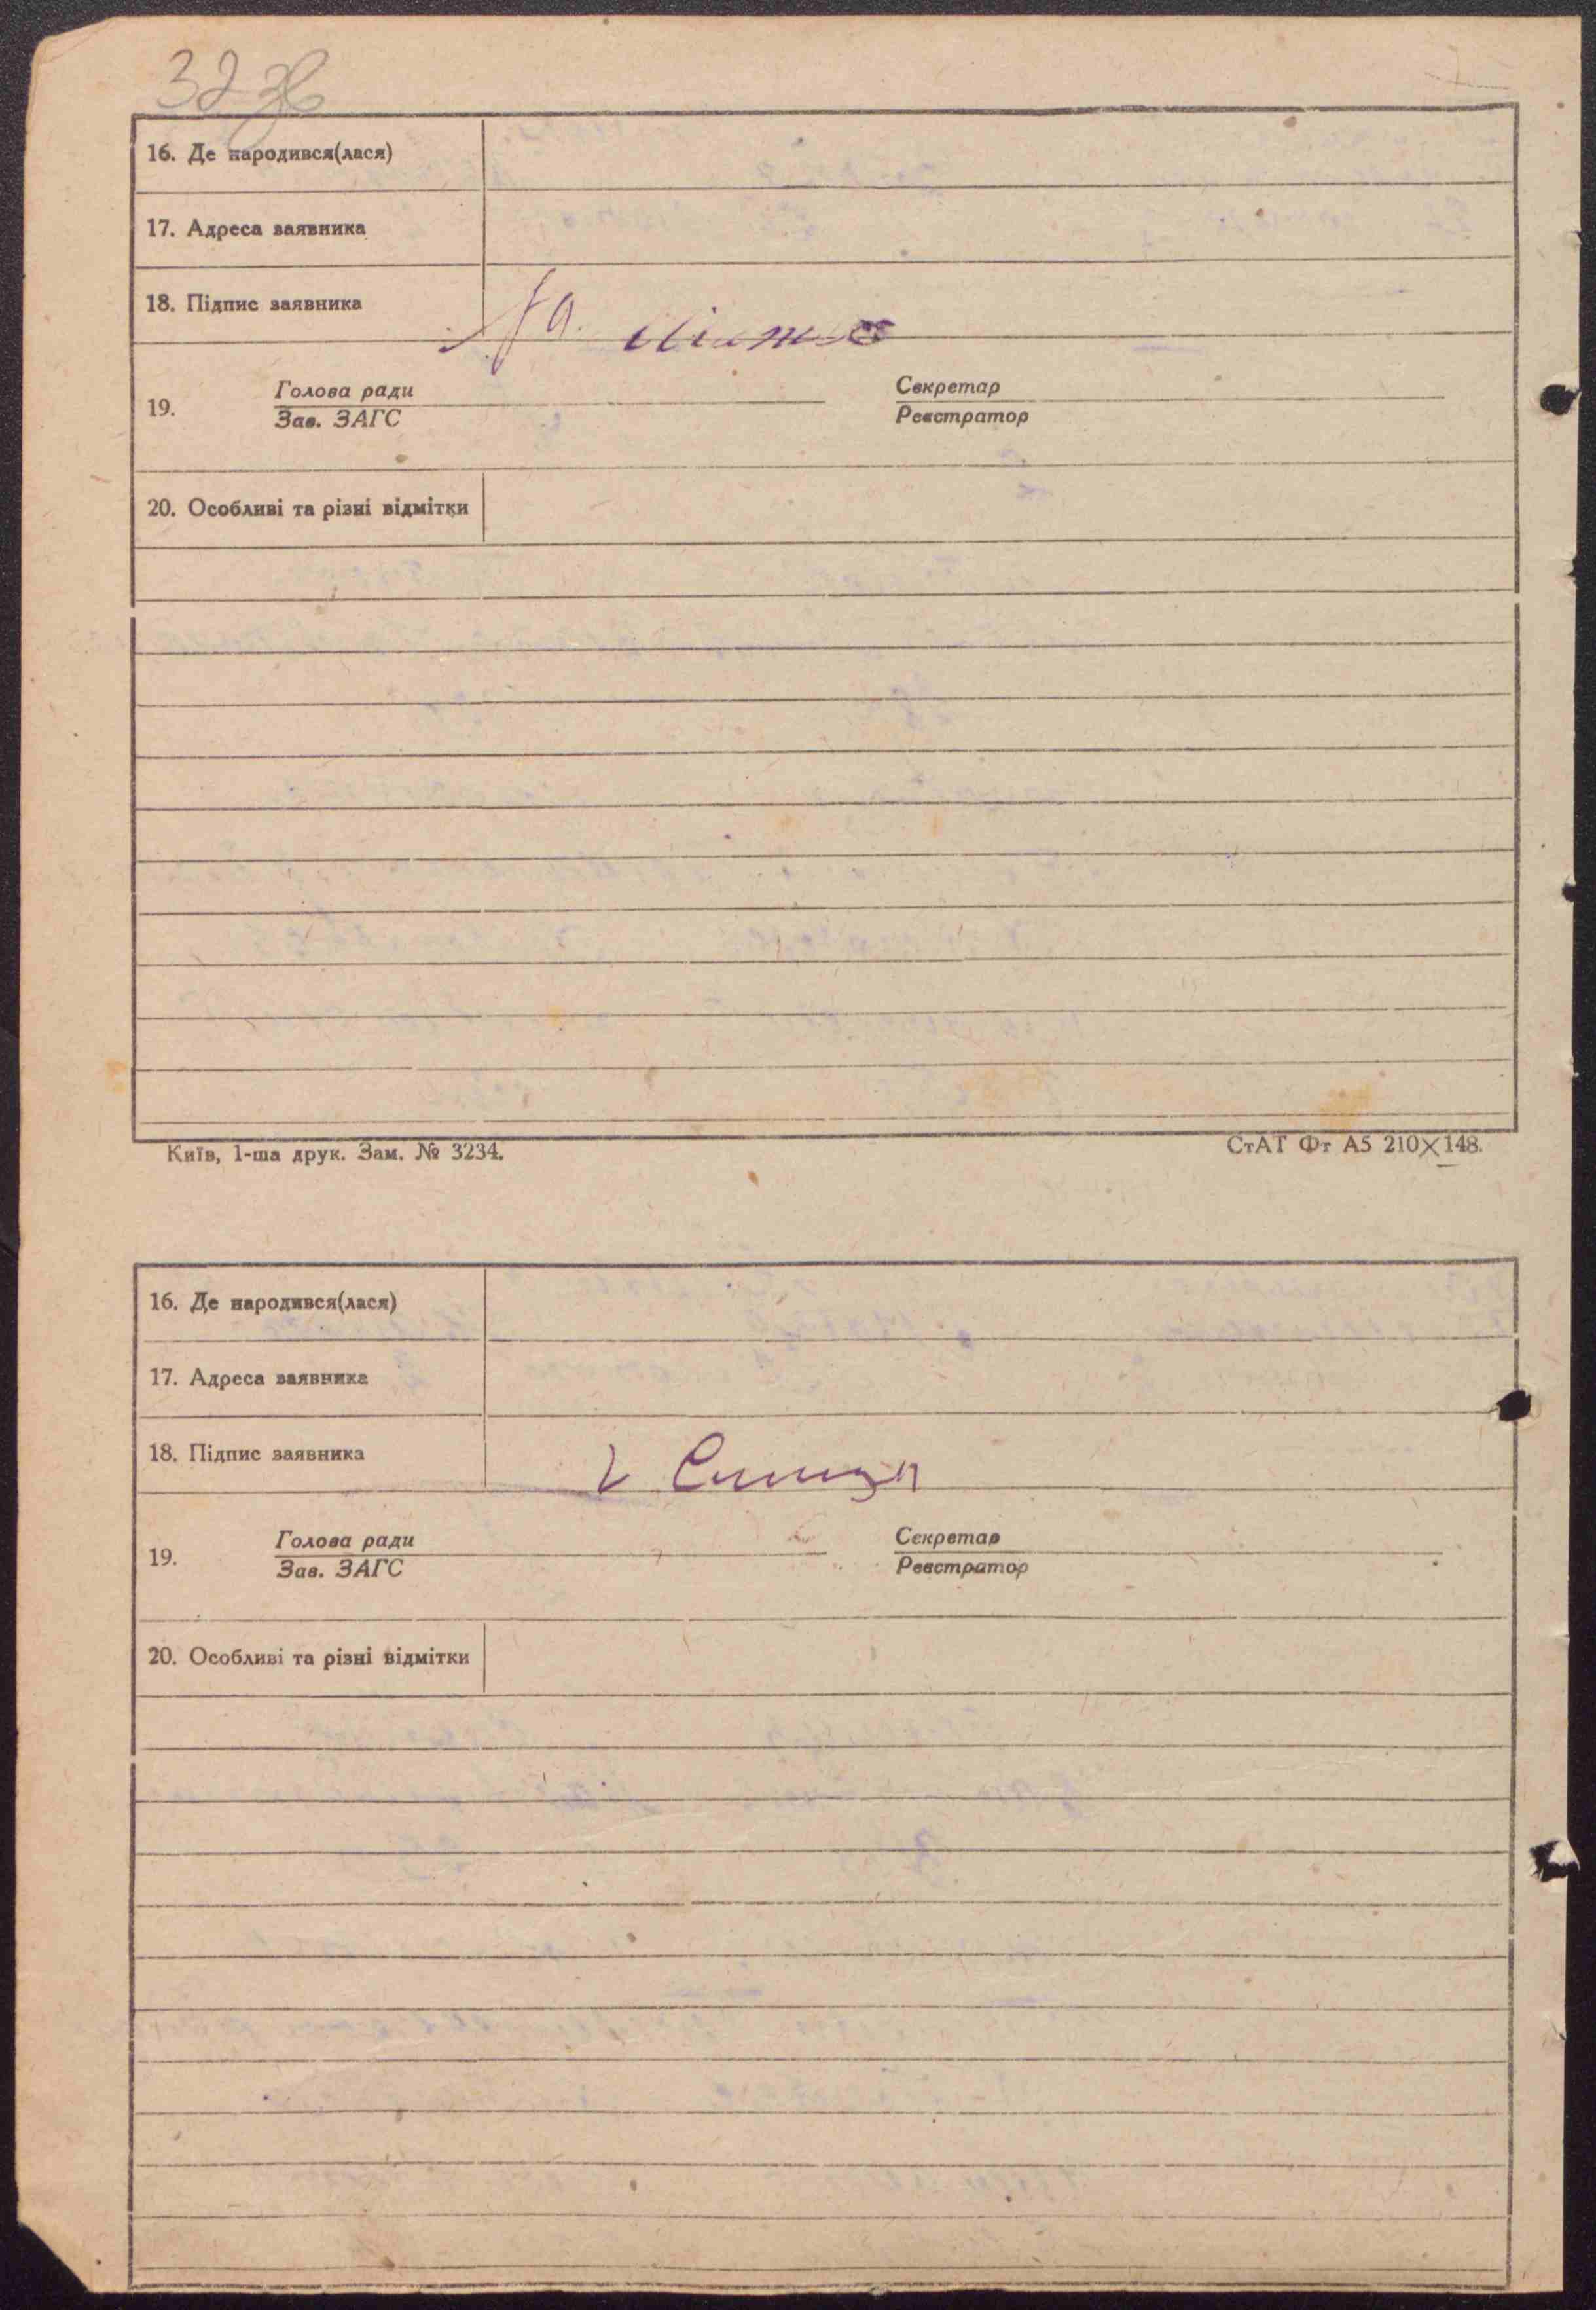 32 зв
16. Де народився(лася)
17. Адреса заявника
18. Підпис заявника
19. Голова ради Секретар
Зав. ЗАГС Реєстратор
20. Особливі та різні відмітки
Київ, 1-ша друк. Зам. № 3234. СтАТ Фт А5 210×148.
16. Де народився(лася)
17. Адреса заявника
18. Підпис заявника
19. Голова ради Секретар
Зав. ЗАГС Реєстратор
20. Особливі та різні відмітки